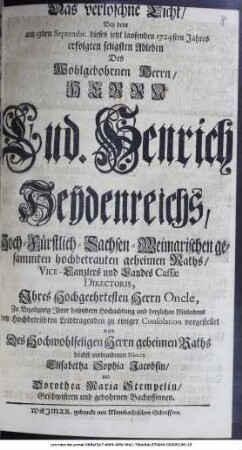 Das verloschne Licht/
Bey dem
am 13ten Septembr. dieses jetzt lauffenden 1724sten Jahres
erfolgten seligsten Ableben
Des
Wohlgebohrnen Herrn/
HERRN
Lud. Henrich
Heydenreichs,
Hoch-Fürstlich-Sachsen-Weimarischen ge-
sammten hochbetrauten geheimen Raths/
VICE-Canzlers und Landes Cassæ
DIRECTORIS,
Ihres Hochgeehrtesten Herrn Oncle,
Zu Bezeigung Ihrer besondern Hochachtung und herzlichen Mitleidens
den Hochbetrübten Leidtragenden zu einiger Consolation vorgestellet
von
Des Hochwohlseligen Herrn geheimen Raths
höchst verbundenen Niecen
Elisabetha Sophia Jacobsin/
und
Dorothea Maria Stempelin/
Geschwistern und gebohrnen Bachoffinnen.
WEIMAR, gedruckt mit Mumbachischen Schrifften.